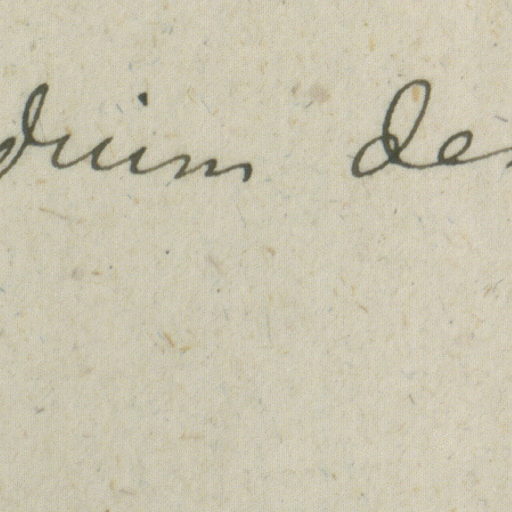 dium de